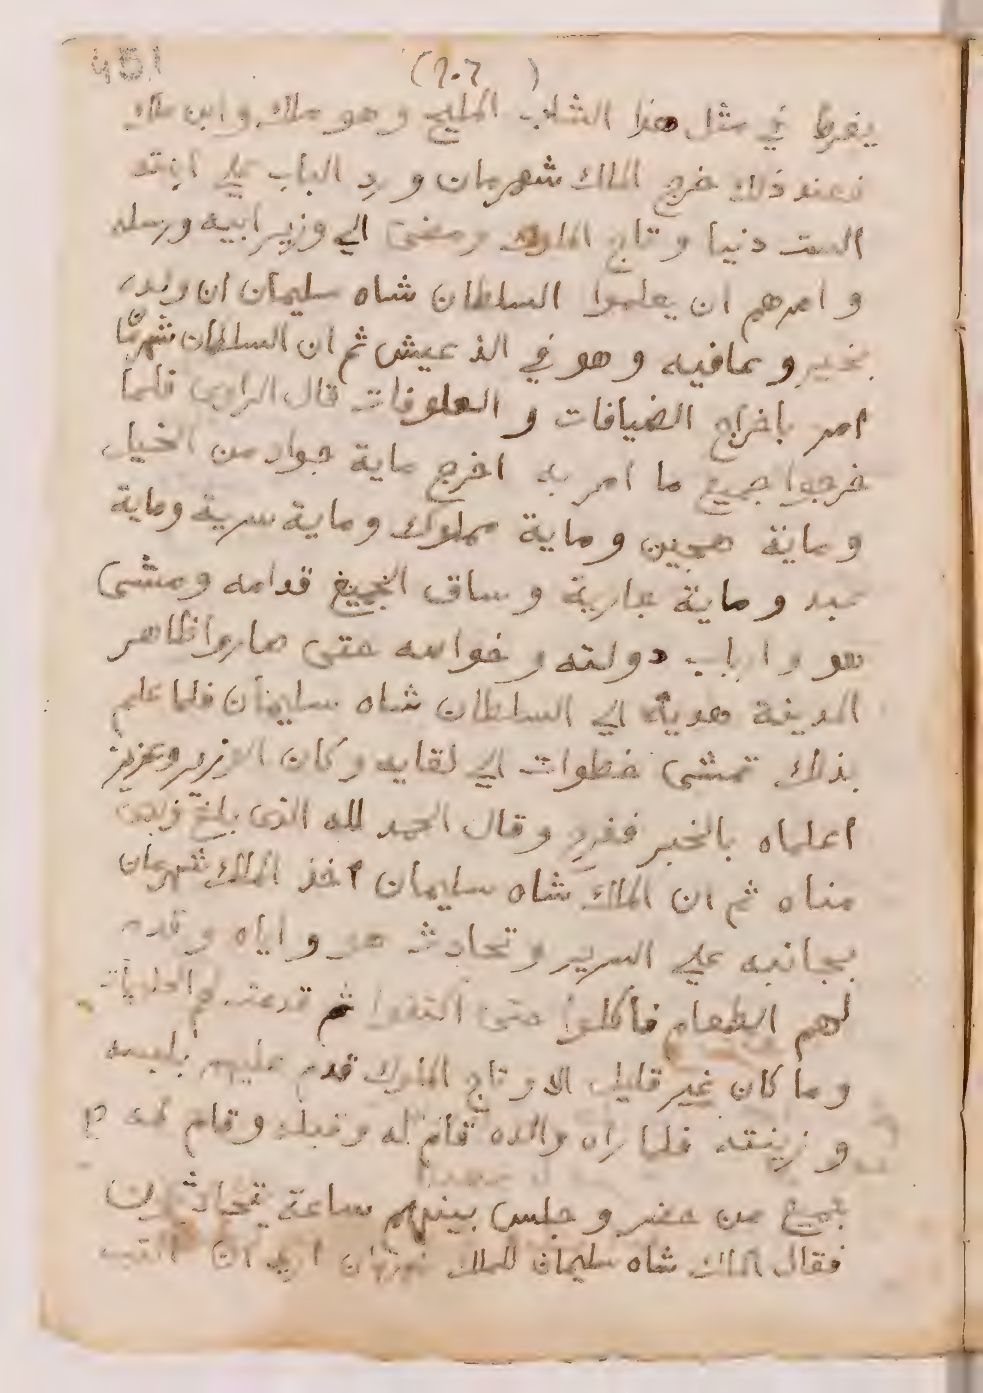 451
(٦٠٦)
يفرط في مثل هذا الشاب المليح وهو ملك وابن ملك
فعند ذلك خرج الملك شهرمان ورد الباب علي ابنته
الست دنيا وتاج الملوك ومضي الي وزير ابيه ورسله
و امرهم ان يعلموا السلطان شاه سليمان ان ولده
بخير وعافيه وهو في الذ عيش ثم ان السلطان شهرمان
امر باخراج الضيافات و العلوفات قال الراوي فلما
خرجوا جميع ما امر به اخرج ماية جواد من الخيل
وماية هجين وماية مملوك وماية سرية وماية
عبد وماية جارية وساق الجميع قدامه ومشى
هو وارباب دولته وخواصه حتى صاروا ظاهر
المدينة هدية الي السلطان شاه سليمان فلما علم
بذلك تمشى خطوات الي لقايه وكان الوزير وعزيز
اعلماه بالخبر ففرح وقال الحمد لله الذي بلغ ولدي
مناه ثم ان الملك شاه سليمان اخذ الملك شهرمان
بجانبه علي السرير وتحادث هو واياه وقدم
لهم الطعام فاكلوا حتى اكتفوا ثم قدمت لهم الحلويات
وما كان غير قليل الا وتاج الملوك قدم عليهم بلبسه
وزينته فلما راه والده قام له وقبله وقام له
جميع من حضر وجلس بينهم ساعة يتحادثون
فقال الملك شاه سليمان للملك شهرمان اريد ان اكتب